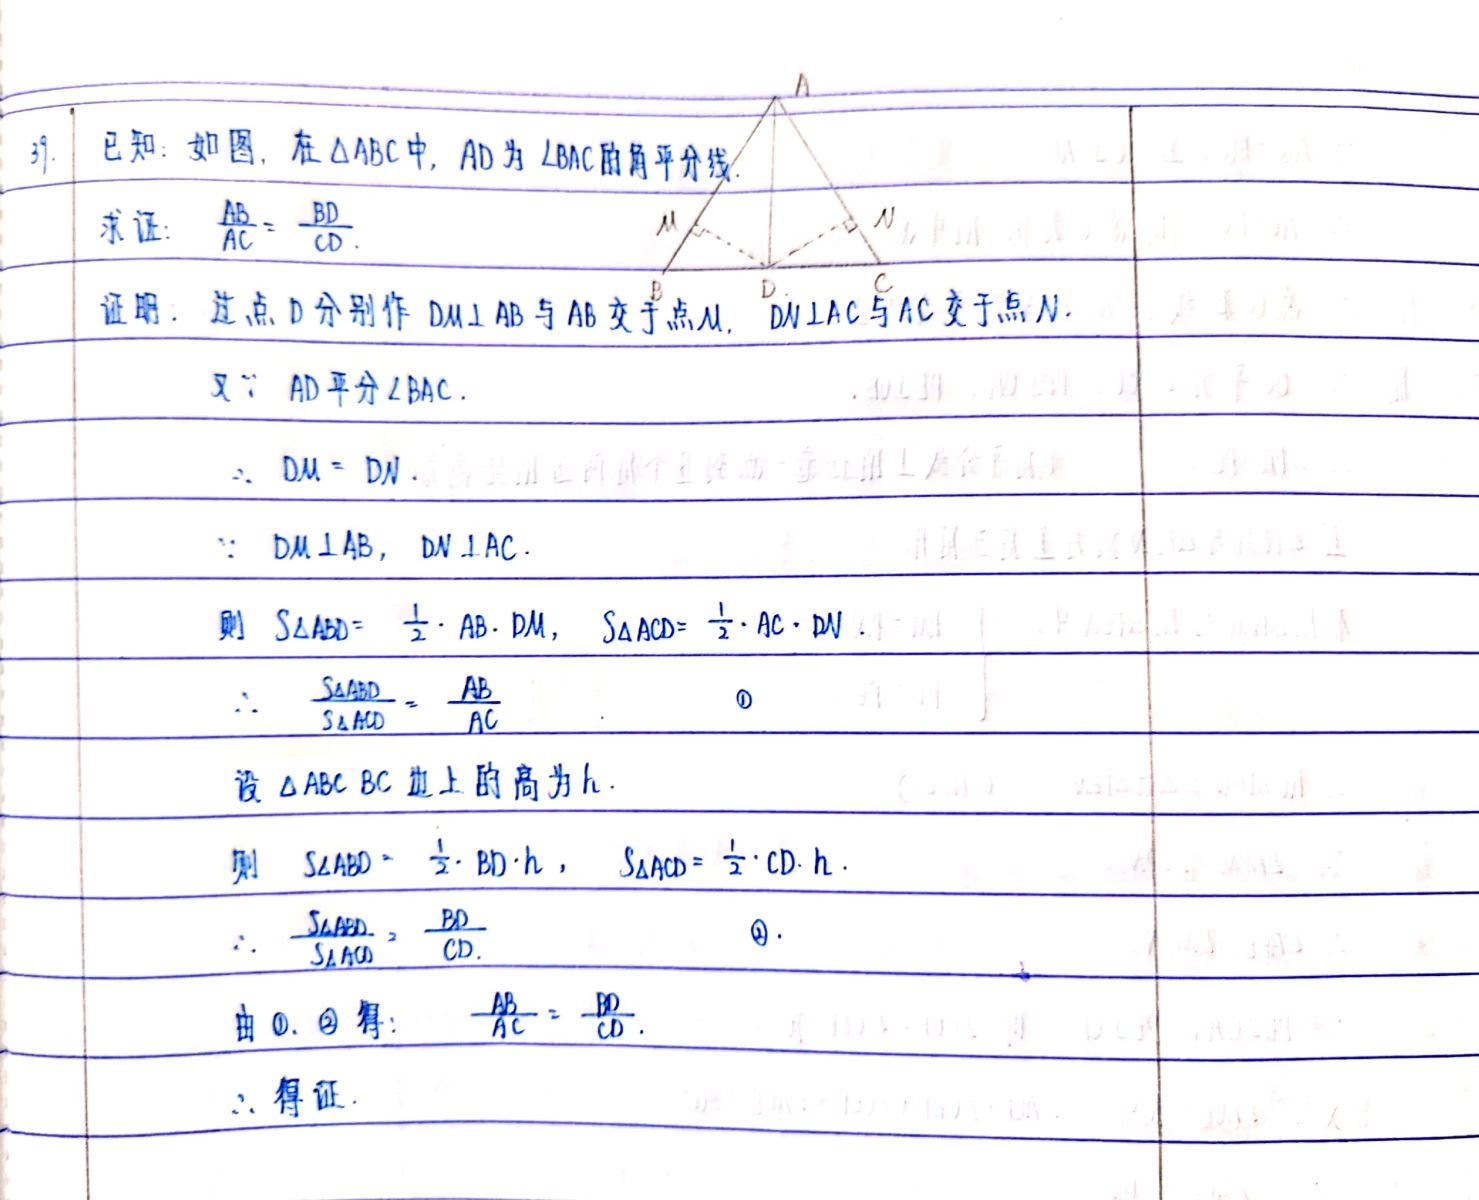 39. 已知: 如图, 在△ABC中, AD为∠BAC的角平分线.
求证: AB/AC = BD/CD.
A
M
N
B
D
C
证明: 过点D分别作 DM⊥AB与AB交于点M, DN⊥AC与AC交于点N.
又∵ AD平分∠BAC.
∴ DM = DN.
∵ DM⊥AB, DN⊥AC.
则 S△ABD = 1/2 · AB · DM, S△ACD = 1/2 · AC · DN.
∴ S△ABD/S△ACD = AB/AC ①
设 △ABC BC 边上的高为h.
则 S△ABD = 1/2 · BD · h, S△ACD = 1/2 · CD · h.
∴ S△ABD/S△ACD = BD/CD. ②.
由 ①. ② 得: AB/AC = BD/CD.
∴ 得证.